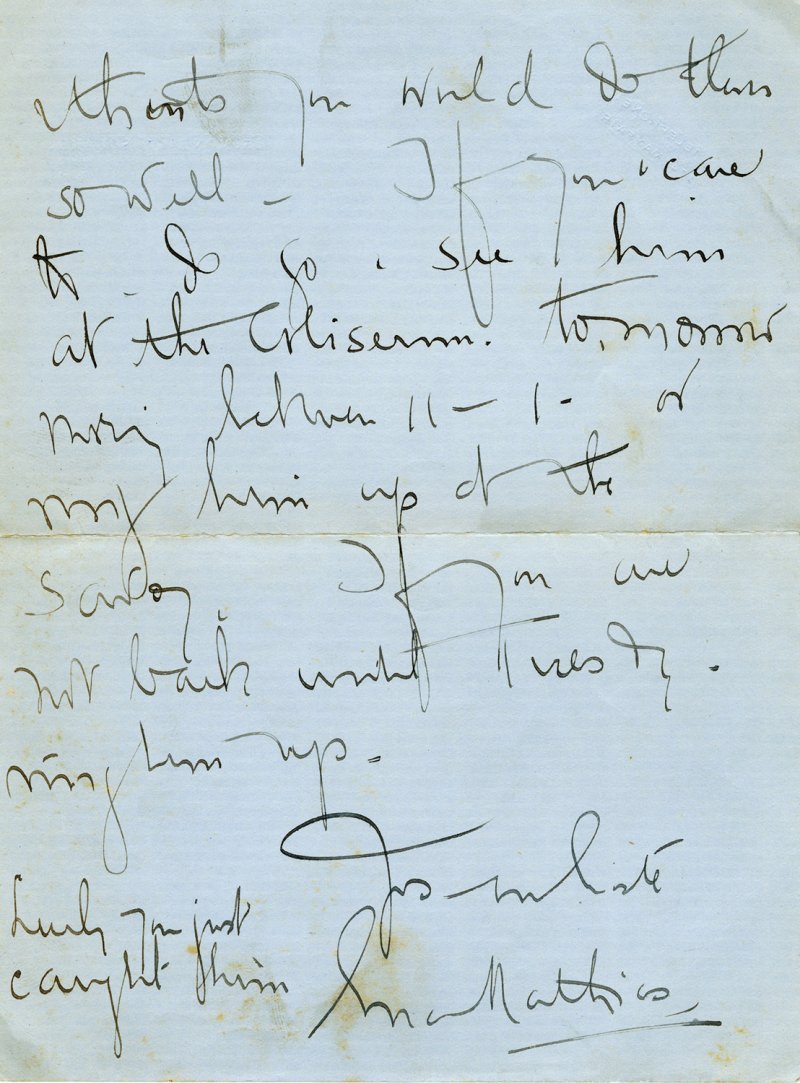 thinks you would do them
so well – If you care
to do go & see him
at the Coliseum. tomorrow
morning between 11 – 1 – or
ring him up at the
Savoy. If you are
not back until Tuesday.
ring him up –
Yrs in haste
Lena Mathias
Lucky you just
caught him